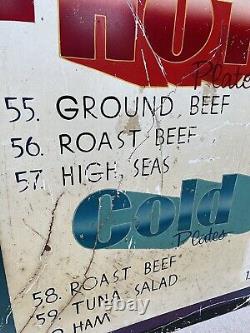 HOT
Plates
55. GROUND BEEF
56. ROAST BEEF
57. HIGH SEAS
Cold
Plates
58. ROAST BEEF
59. TUNA SALAD
HAM